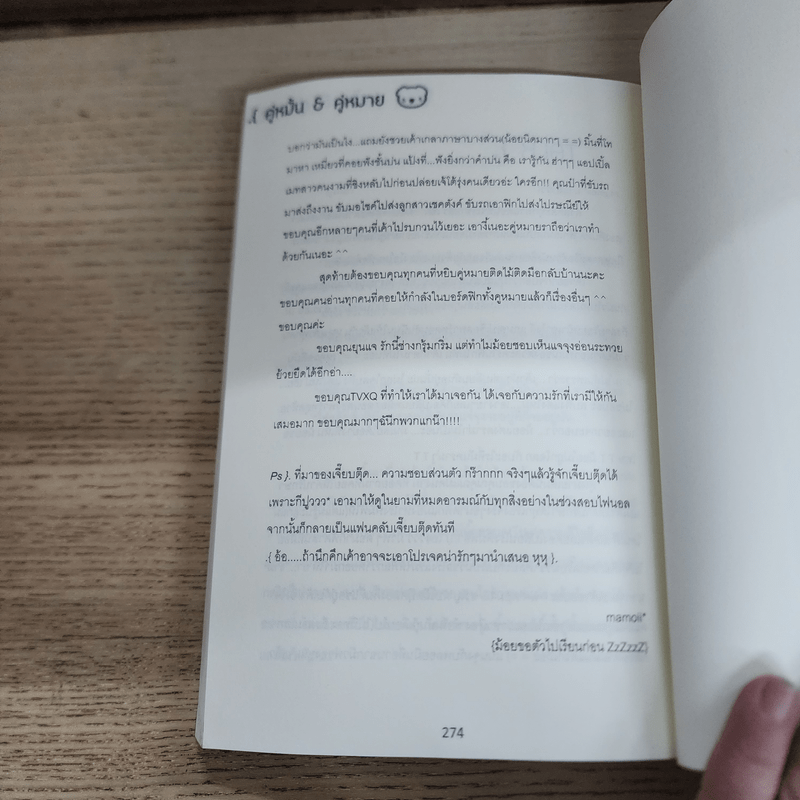 .{ คู่หมั้น & คู่หมาย
บอกว่ามันเป็นไง...แถมยังช่วยเค้าเกลาภาษาบางส่วน(น้อยนิดมากๆ = =) มิ้นที่โท
มาหา เหมี่ยวที่คอยฟังชั้นบ่น แป้งที่...ฟังยิ่งกว่าคำบ่น คือ เรารู้กัน ฮ่าๆๆ แอปเปิ้ล
เมทสาวคนงามที่ชิงหลับไปก่อนปล่อยเจ๊โต้รุ่งคนเดียวอ่ะ ใครอีก!! คุณป๋าที่ขับรถ
มาส่งถึงงาน ขับมอไซค์ไปส่งลูกสาวเชคตังค์ ขับรถเอาฟิกไปส่งไปรษณีย์ให้
ขอบคุณอีกหลายๆคนที่เค้าไปรบกวนไว้เยอะ เอางี้เนอะคู่หมายเราถือว่าเราทำ
ด้วยกันเนอะ ^^
สุดท้ายต้องขอบคุณทุกคนที่หยิบคู่หมายติดไม้ติดมือกลับบ้านนะคะ
ขอบคุณคนอ่านทุกคนที่คอยให้กำลังในบอร์ดฟิกทั้งคู่หมายแล้วก็เรื่องอื่นๆ ^^
ขอบคุณค่ะ
ขอบคุณยุนแจ รักนี้ช่างกรุ้มกริ่ม แต่ทำไมม้อยชอบเห็นแจจุงอ่อนระทวย
ย้วยยืดได้อีกอ่า....
ขอบคุณTVXQ ที่ทำให้เราได้มาเจอกัน ได้เจอกับความรักที่เรามีให้กัน
เสมอมาก ขอบคุณมากๆฉันีกพวกแกน๊า!!!!
Ps }. ที่มาของเจี๊ยบตุ๊ด... ความชอบส่วนตัว กร๊ากกก จริงๆแล้วรู้จักเจี๊ยบตุ๊ดได้
เพราะกีปูววว* เอามาให้ดูในยามที่หมดอารมณ์กับทุกสิ่งอย่างในช่วงสอบไฟนอล
จากนั้นก็กลายเป็นแฟนคลับเจี๊ยบตุ๊ดทันที
.{ อ้อ.....ถ้านึกคึกเค้าอาจจะเอาโปรเจคน่ารักๆมานำเสนอ หุหุ }.
mamoii*
{ม้อยขอตัวไปเรียนก่อน ZzZzzZ}
274